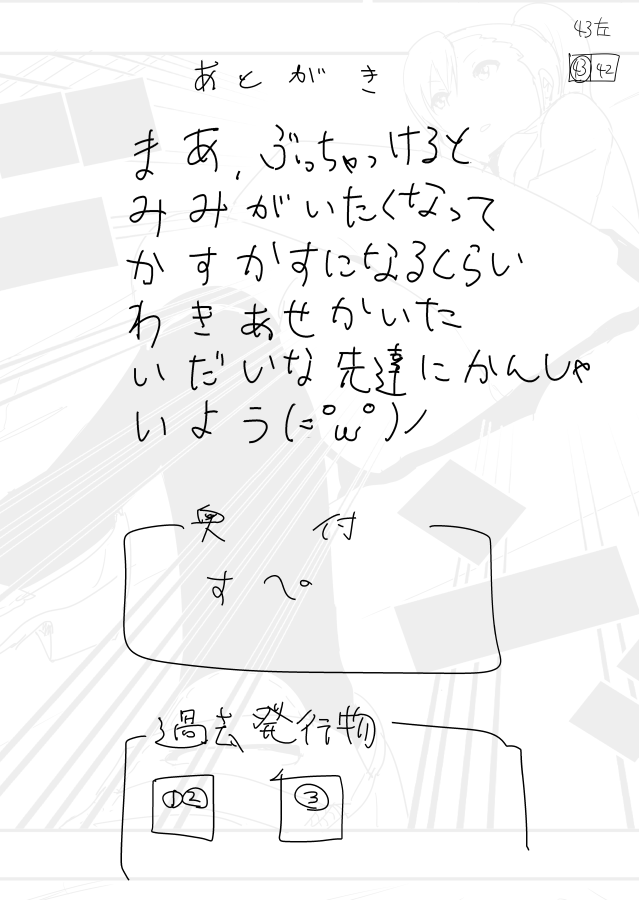 43左
43 42
あとがき
まあ、ぶっちゃっけると
みみがいたくなって
かすかすになるくらい
わきあせかいた
いだいな先達にかんしゃ
いよう(=゜ω゜)ノ
奥付
すぺ
過去発行物
①② ③